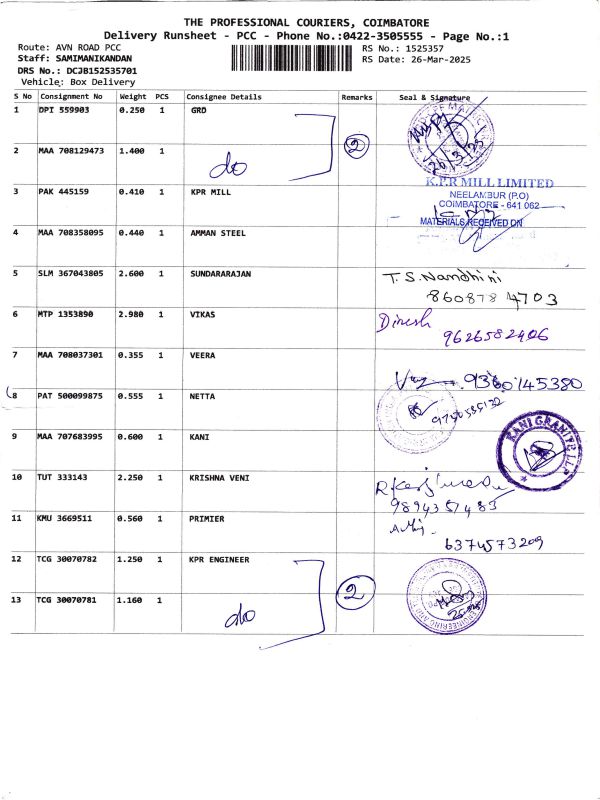 THE PROFESSIONAL COURIERS, COIMBATORE
Delivery Runsheet - PCC - Phone No.:0422-3505555 - Page No.:1
Route: AVN ROAD PCC
RS No.: 1525357
Staff: SAMIMANIKANDAN
RS Date: 26-Mar-2025
DRS No.: DCJB152535701
Vehicle: Box Delivery
S No Consignment No Weight PCS Consignee Details Remarks Seal & Signature
1 DPI 559903 0.250 1 GRD
2 MAA 708129473 1.400 1 do 2
26/3/25
3 PAK 445159 0.410 1 KPR MILL
K.P.R MILL LIMITED
NEELAMBUR (P.O)
COIMBATORE - 641 062
MATERIALS RECEIVED ON
4 MAA 708358095 0.440 1 AMMAN STEEL
5 SLM 367043805 2.600 1 SUNDARARAJAN T.S. Nandhini
8608784703
6 MTP 1353890 2.980 1 VIKAS Dinesh
9626582406
7 MAA 708037301 0.355 1 VEERA
9360145380
8 PAT 500099875 0.555 1 NETTA
9 MAA 707683995 0.600 1 KANI
RANI GRANITE LLP
10 TUT 333143 2.250 1 KRISHNA VENI
9894357483
11 KMU 3669511 0.560 1 PRIMIER
6374573209
12 TCG 30070782 1.250 1 KPR ENGINEER
13 TCG 30070781 1.160 1 do 2